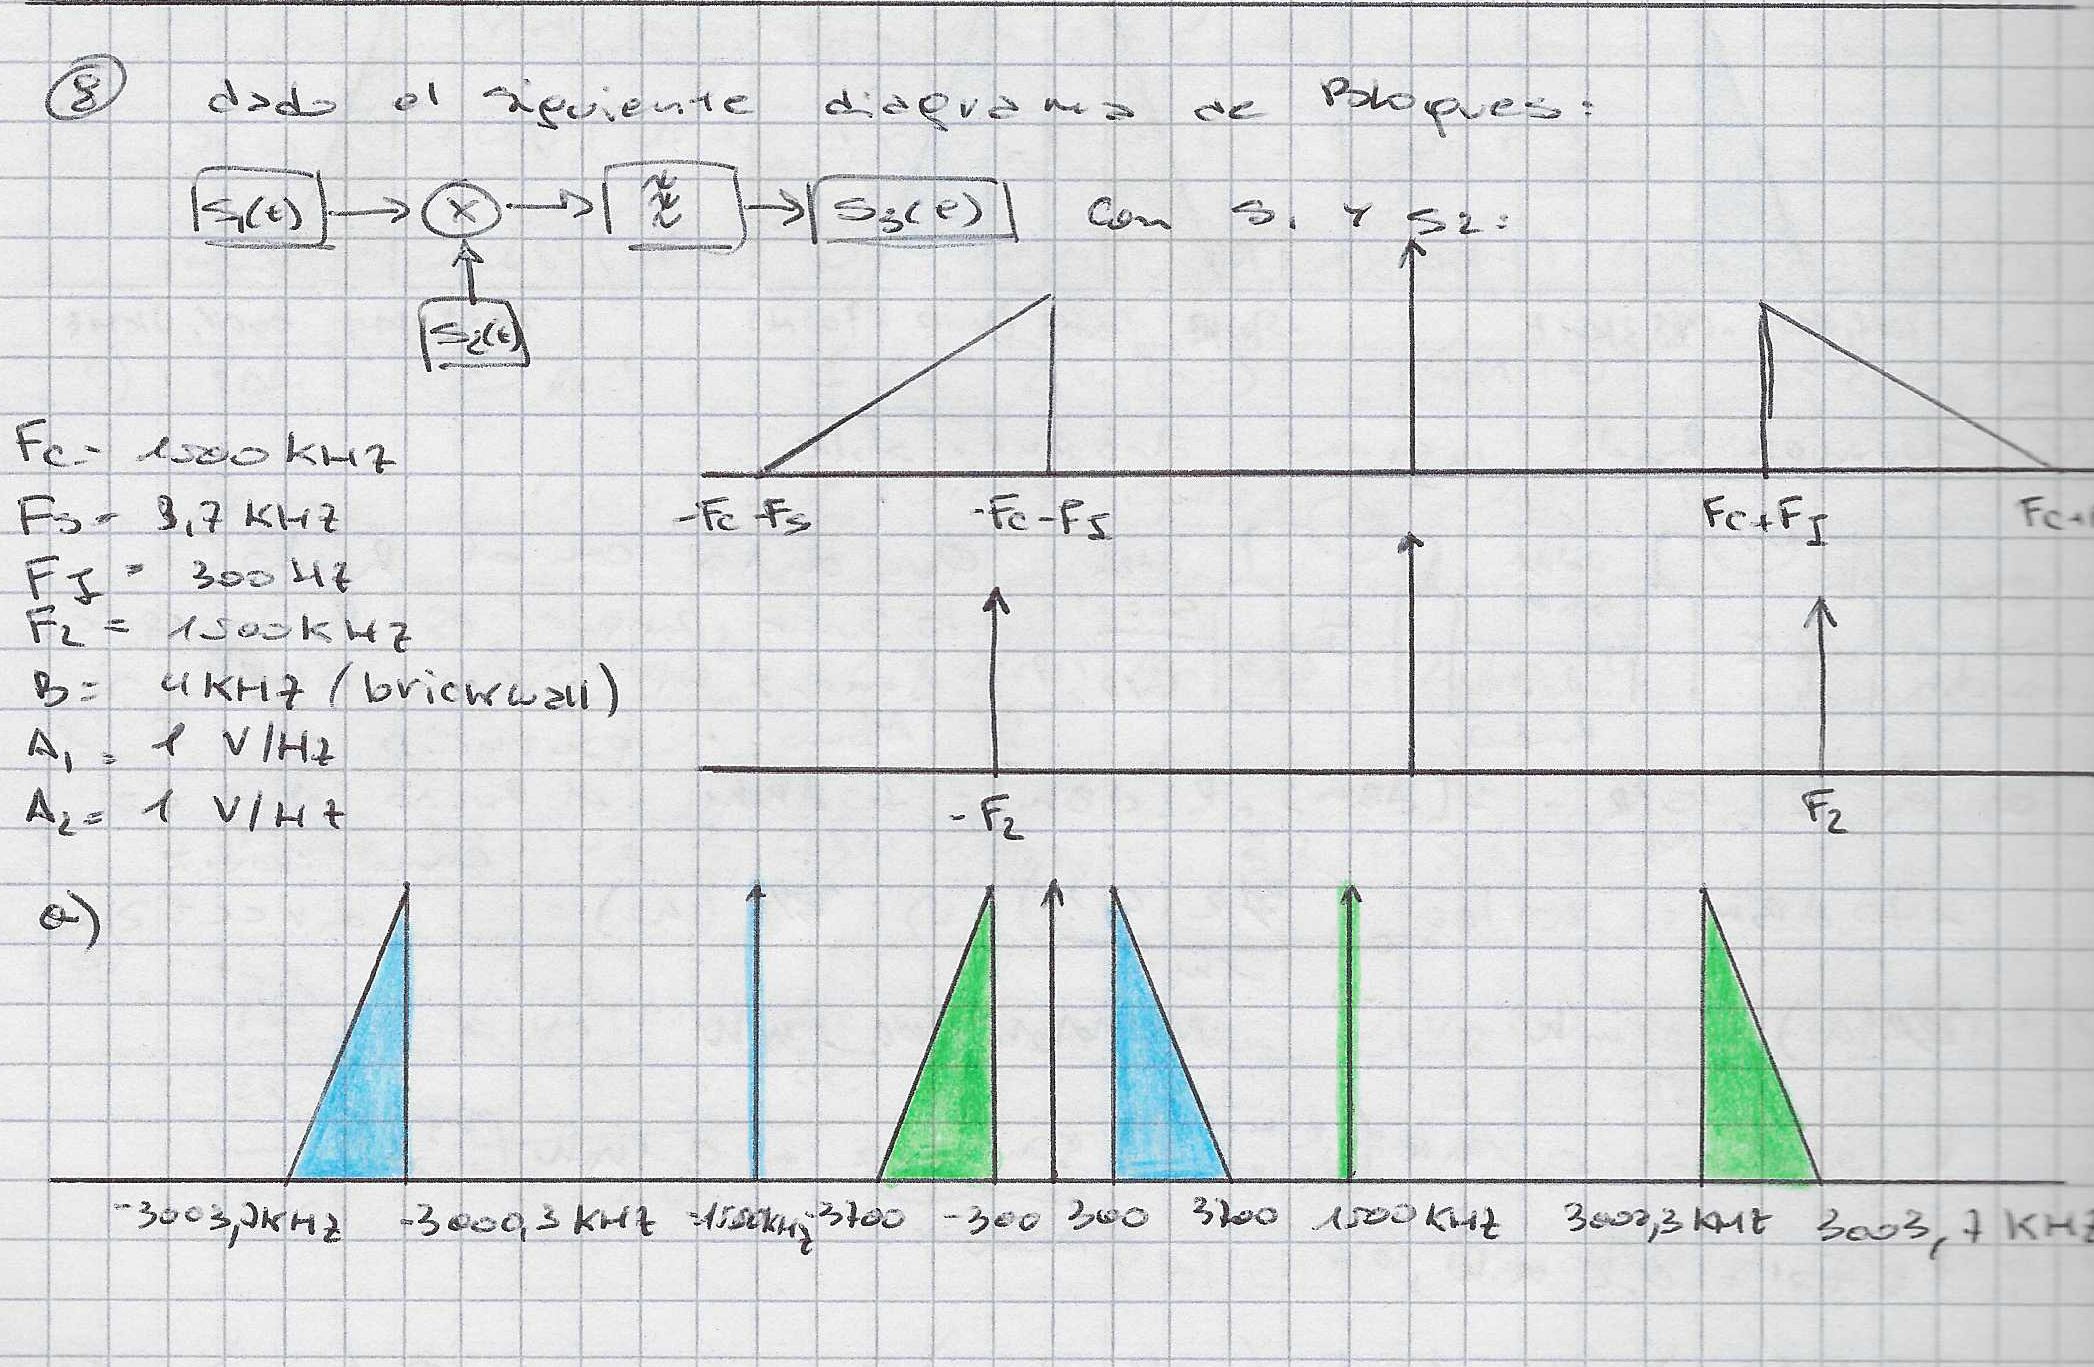 8 dado el siguiente diagrama de Bloques:
S1(t) X S3(t) Con S1 Y S2:
S2(t)
Fc = 1500 KHZ
Fs = 3,7 KHZ
-Fc-Fs -Fc-FI Fc+FI Fc+
FI = 300 HZ
F2 = 1500 KHZ
B = 4 KHZ (brickwall)
A1 = 1 V/HZ
A2 = 1 V/HZ
-F2 F2
a)
-3003,7KHZ -3000,3 KHZ -1500KHZ -3700 -300 300 3700 1500 KHZ 3000,3 KHZ 3003,7 KHZ